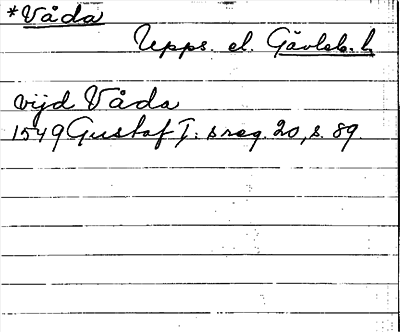 *Våda
Upps. el. Gävleb. l.
vijd Våda
1549 Gustaf I:s reg. 20, s. 89.